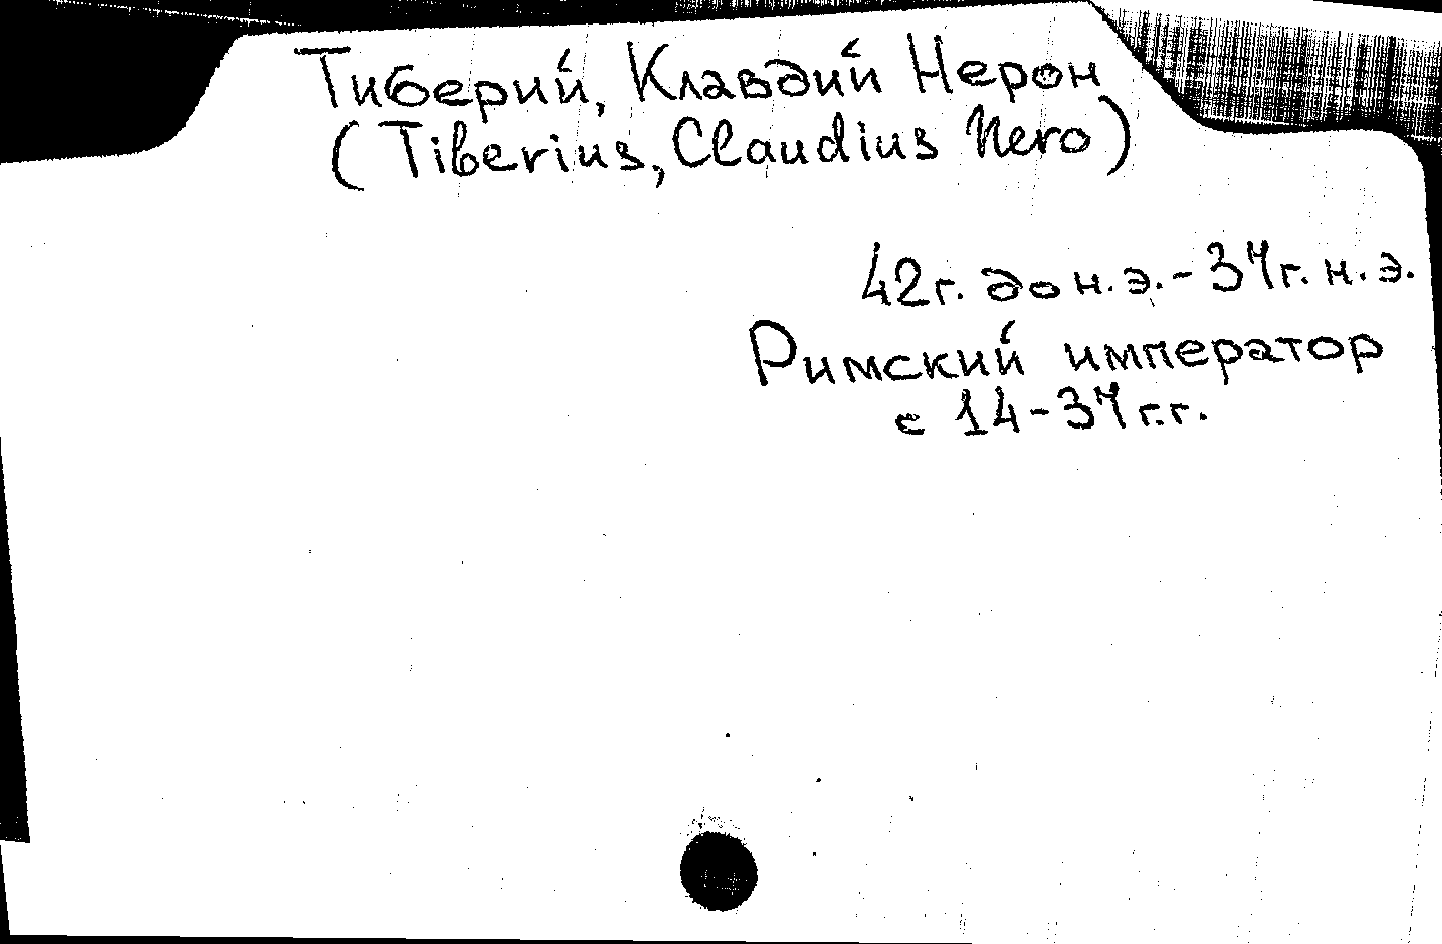 Тиберий, Клавдий Нерон
(Tiberius, Claudius Nero)
42г. до н.э. - 37г. н.э.
Римский император
с 14-37 г.г.